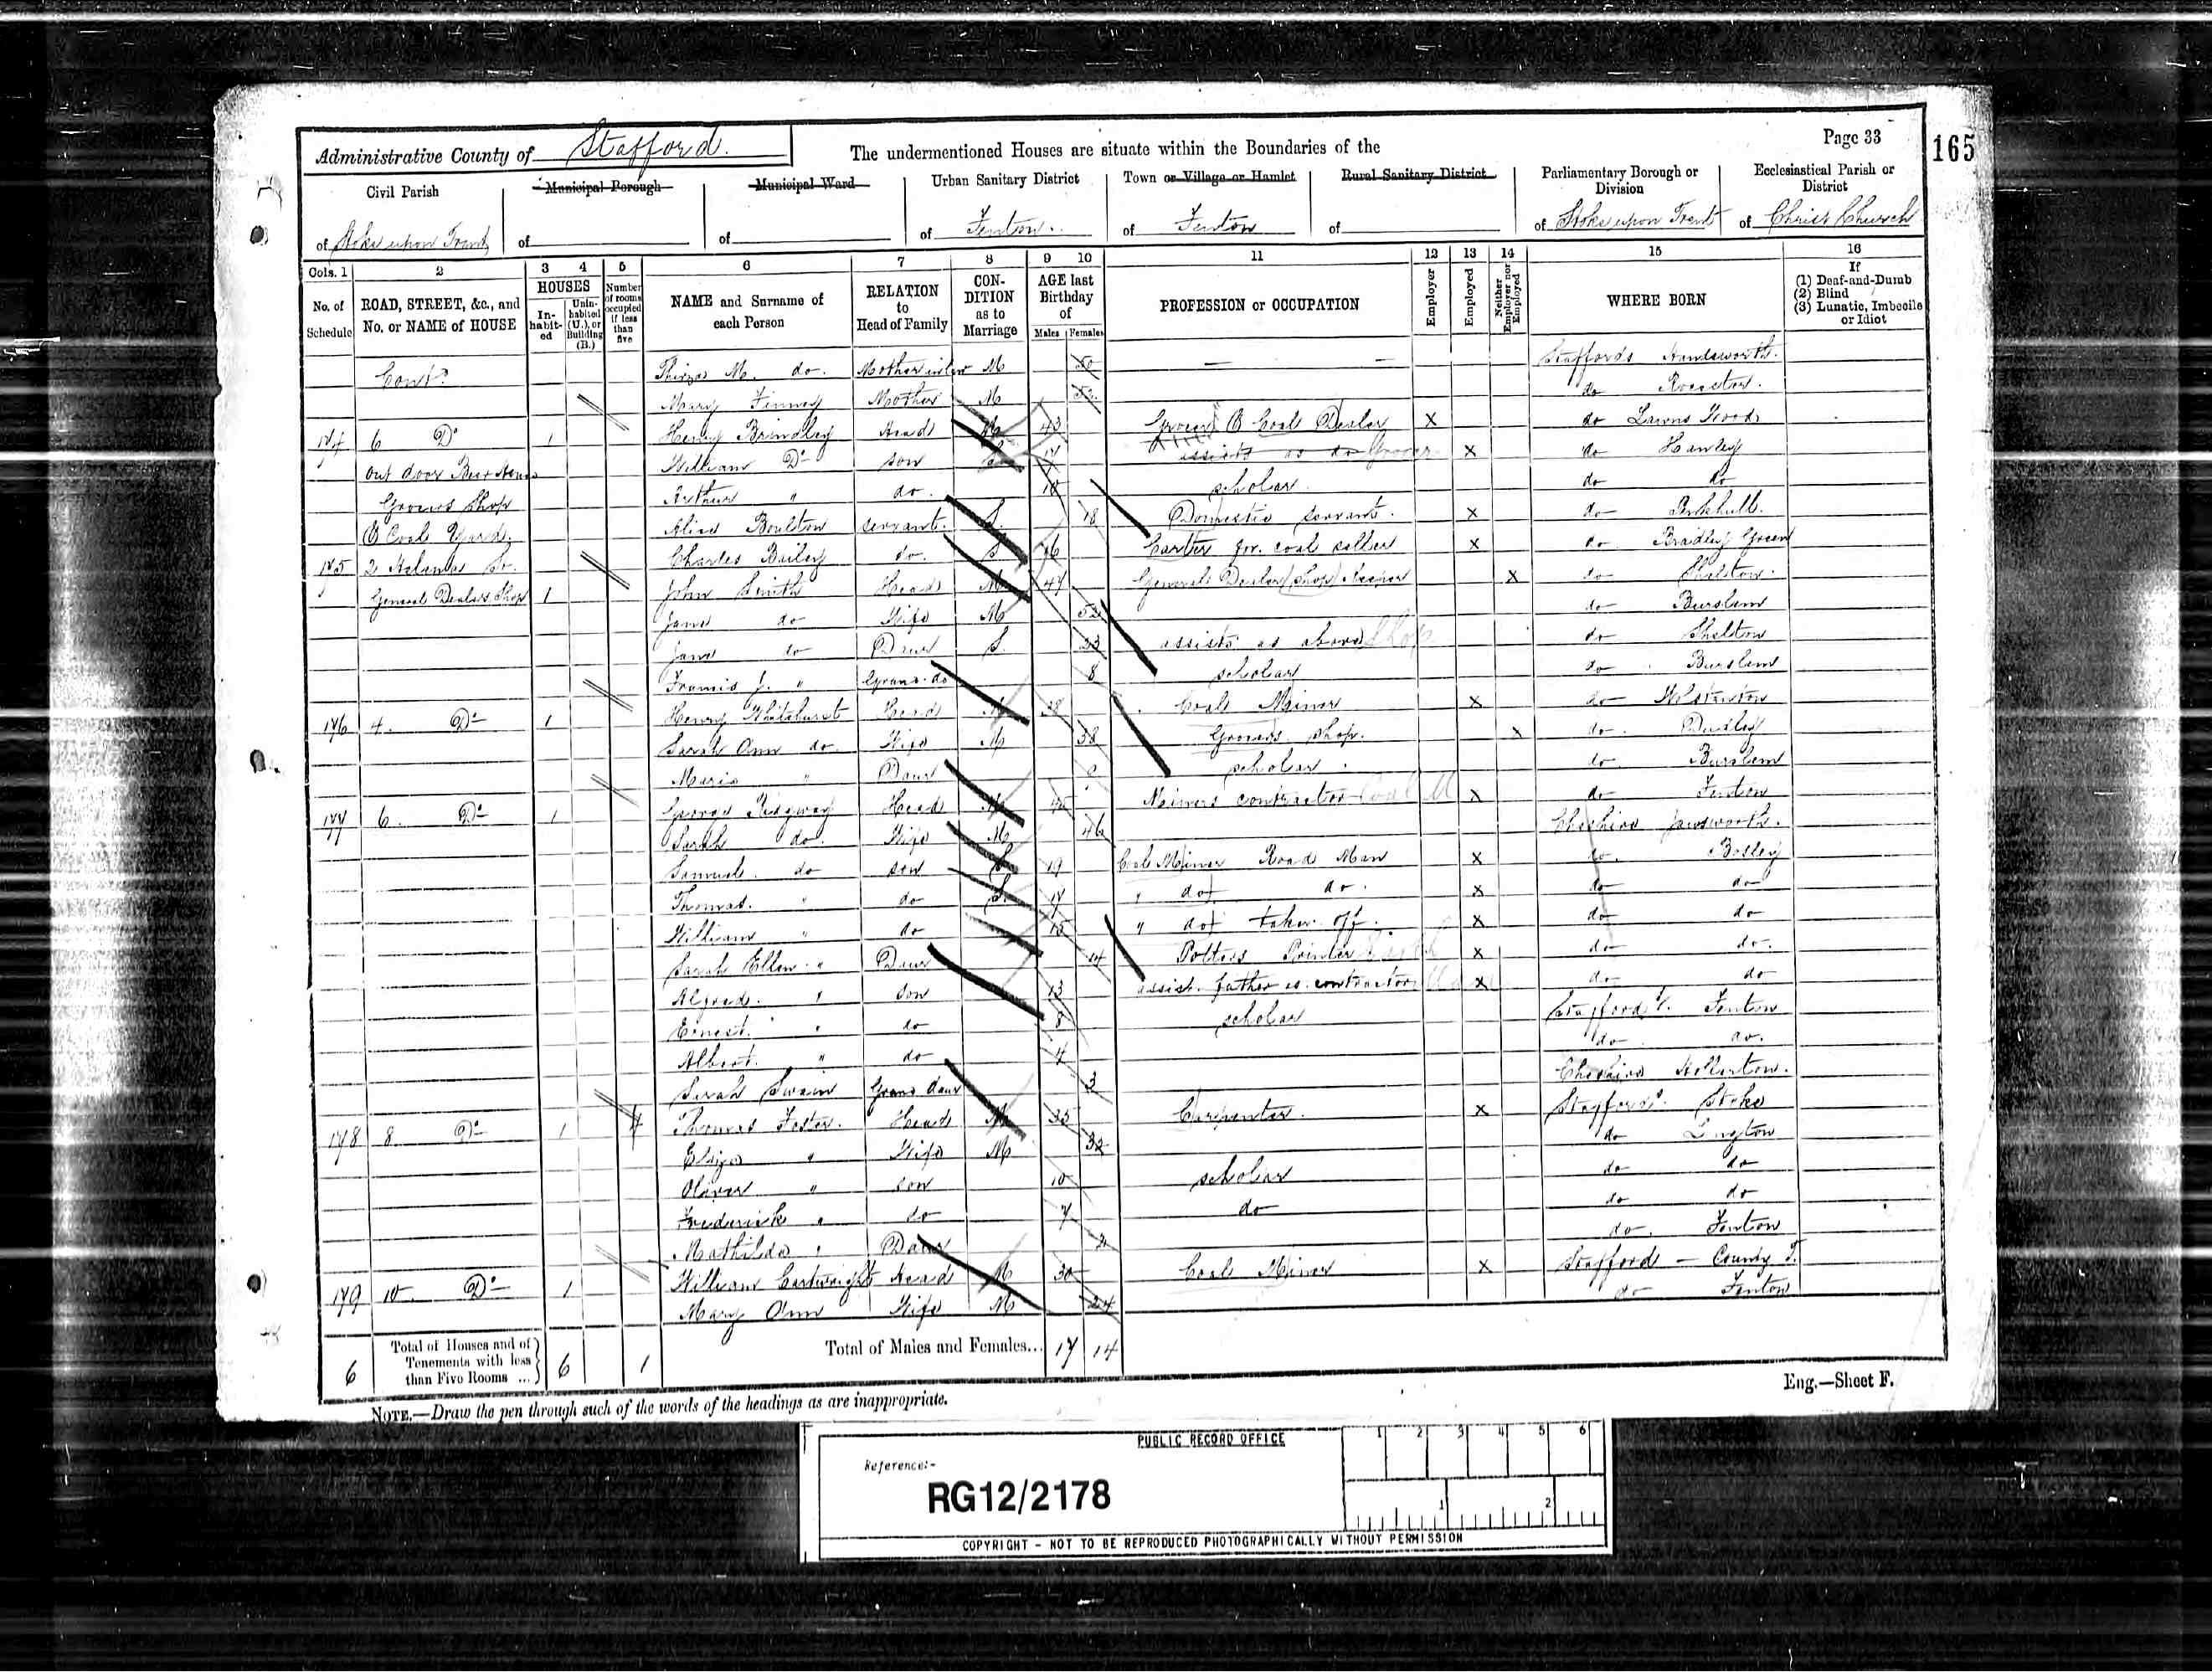 Administrative County of Stafford.
The undermentioned Houses are situate within the Boundaries of the
Page 33
165
Civil Parish
Municipal Borough
Municipal Ward
Urban Sanitary District
Town or Village or Hamlet
Rural Sanitary District
Parliamentary Borough or Division
Ecclesiastical Parish or District
of Stoke upon Trent of of of Fenton. of Fenton of of Stoke upon Trent of Christ Church
Cols. 1 2 3 4 5 6 7 8 9 10 11 12 13 14 15 16
No. of Schedule
ROAD, STREET, &c., and No. or NAME of HOUSE
HOUSES
In-habit-ed
Unin-habited (U.), or Building (B.)
Number of rooms occupied if less than five
NAME and Surname of each Person
RELATION to Head of Family
CON-DITION as to Marriage
AGE last Birthday of
Males Females
PROFESSION or OCCUPATION
Employer
Employed
Neither Employer nor Employed
WHERE BORN
If
(1) Deaf-and-Dumb
(2) Blind
(3) Lunatic, Imbecile or Idiot
Cont. M. do. Mother in law M 50 — — Staffords Handsworth.
Mary Finney Mother M do Rocester.
174 6 Do 1 Henry Brindley Head M 43 Grocer & Coal Dealer X do Lawns Wood
out door Beer House William Do son 17 assists as do Grocer X do Hanley
Grocers Shop Arthur " do. scholar. do do
& Coal Yard. Alice Boulton servant. S. 18 Domestic servant. X do Penkhull.
Charles Bailey do. S 16 Carter for coal seller X do Bradley Green
175 2 St. John Smith Head M 47 General Dealer (shop) keeper X do Shelton.
General Dealers Shop 1 Jane do Wife M 52 do Burslem
Jane do Daur S. 23 assists as above Shop do Shelton
Francis J. " Grand. do 8 scholar do Burslem
176 4. Do 1 Henry Whitehurst Head M 38 Coal Miner X do Wolstanton
Sarah Ann do Wife M 38 Grocers shop. X do. Dudley
Maria " Daur scholar. do. Burslem
177 6. Do 1 George Ridgway Head M Miners contractor X do Fenton
Sarah do. Wife M 46 Cheshire Gawsworth.
Samuel. do son S 19 Coal Miner Road Man X do. Bosley
Thomas. " do S. 17 " do do. X do do
William " do 15 " do taker off. X do do
Sarah Ellen " Daur 14 Potters Printer X do do.
Alfred. " son 13 assist. father as contractor X do do
Ernest. " do 8 scholar Staffords. Fenton
Albert. " do 4 do do.
Sarah Swain Grand daur 3 Cheshire
178 8. Do 1 4 Thomas Foster. Head M 35 Carpenter. X Staffords. Stoke
Eliza " Wife M 32 do Longton
Oliver " son 10 scholar do do
Frederick " do 7 do do do
Mathilda " Daur 2 do. Fenton
179 10. Do 1 William Cartwright Head M 30 Coal Miner X Stafford — County T.
Mary Ann Wife M 24 do Fenton
6 Total of Houses and of Tenements with less than Five Rooms ... 6 1 Total of Males and Females... 17 14
NOTE.—Draw the pen through such of the words of the headings as are inappropriate.
Eng.—Sheet F.
PUBLIC RECORD OFFICE
1 2 3 4 5 6
Reference:-
RG12/2178
1 2
COPYRIGHT - NOT TO BE REPRODUCED PHOTOGRAPHICALLY WITHOUT PERMISSION